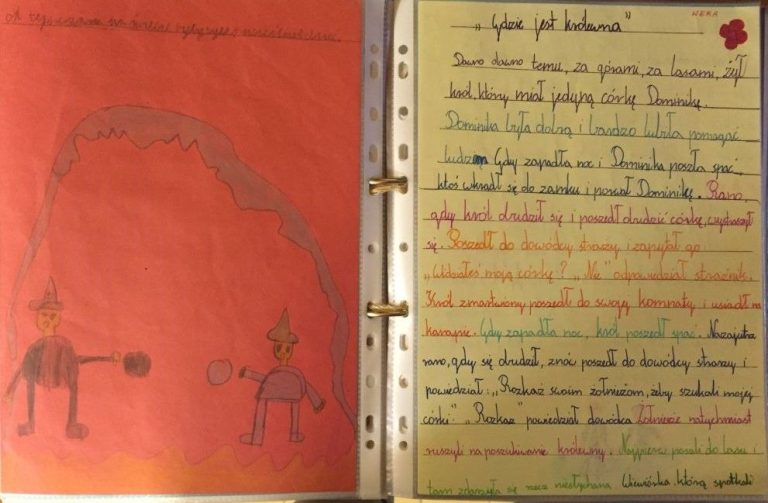 „Gdzie jest królewna”
WERA
Dawno dawno temu, za górami, za lasami, żył
król, który miał jedyną córkę Dominikę.
Dominika była dobrą i bardzo lubiła pomagać
ludziom Gdy zapadła noc i Dominika poszła spać,
ktoś wkradł się do zamku i porwał Dominikę. Rano,
gdy król obudził się i poszedł obudzić córkę, wystraszył
się. Poszedł do dowódcy straży i zapytał go
„Widziałeś moją córkę? „Nie” odpowiedział strażnik.
Król zmartwiony poszedł do swojej komnaty i usiadł na
kanapie. Gdy zapadła noc, król poszedł spać. Nazajutrz
rano, gdy się obudził, znów poszedł do dowódcy straży i
powiedział: „Rozkaż swoim żołnieżom, żeby szukali mojej
córki” „Rozkaz” powiedział dowódca Żołnieże natychmiast
ruszyli na poszukiwanie królewny. Najpierw poszli do lasu i
tam zdarzyła się rzecz niesłychana Wiewiórka, którą spotkali